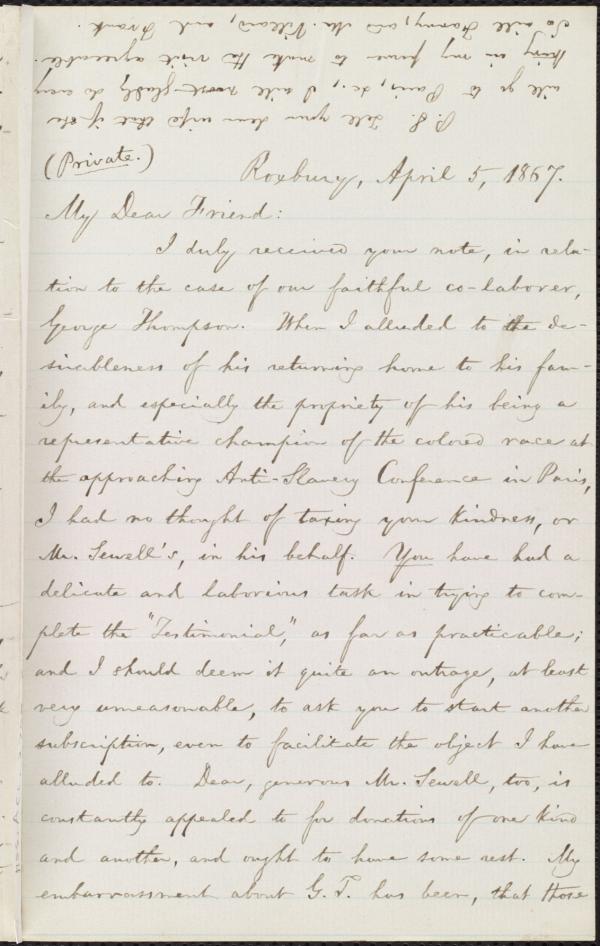 P. S. Tell your dear wife that if she
will go to Paris, &c., I will most gladly do every
thing in my power to make the visit agreeable.
So will Fanny, and Mr. Villard, and Frank.
(Private.)
Roxbury, April 5, 1867.
My Dear Friend:
I duly received your note, in rela-
tion to the case of our faithful co-laborer,
George Thompson. When I alluded to the de-
sirableness of his returning home to his fam-
ily, and especially the propriety of his being a
representative champion of the colored race at
the approaching Anti-Slavery Conference in Paris,
I had no thought of taxing your kindness, or
Mr. Sewell's, in his behalf. You have had a
delicate and laborious task in trying to com-
plete the "Testimonial," as far as practicable;
and I should deem it quite an outrage, at least
very unreasonable, to ask you to start another
subscription, even to facilitate the object I have
alluded to. Dear, generous Mr. Sewell, too, is
constantly appealed to for donations of one kind
and another, and ought to have some rest. My
embarrassment about G. T. has been, that those